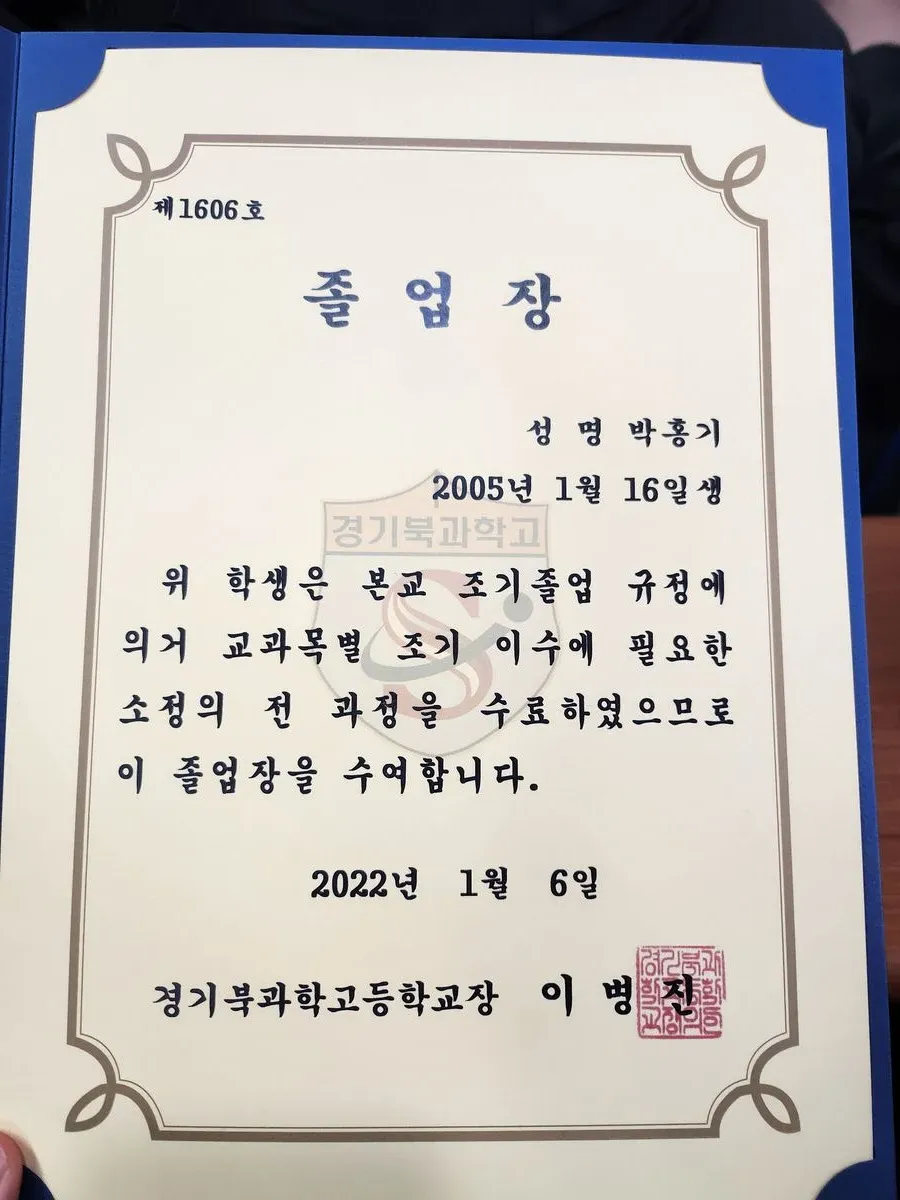 제1606호
졸 업 장
성 명 박홍기
2005년 1월 16일생
경기북과학고
위 학생은 본교 조기졸업 규정에
의거 교과목별 조기 이수에 필요한
소정의 전 과정을 수료하였으므로
이 졸업장을 수여합니다.
2022년 1월 6일
경기북과학고등학교장 이 병 진